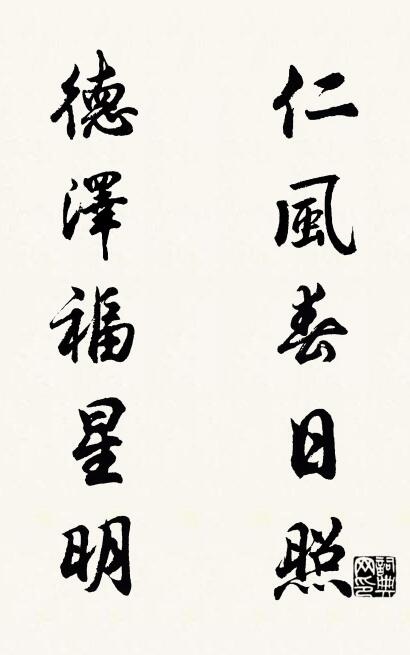 仁風春日照
德澤福星明
詞典網印